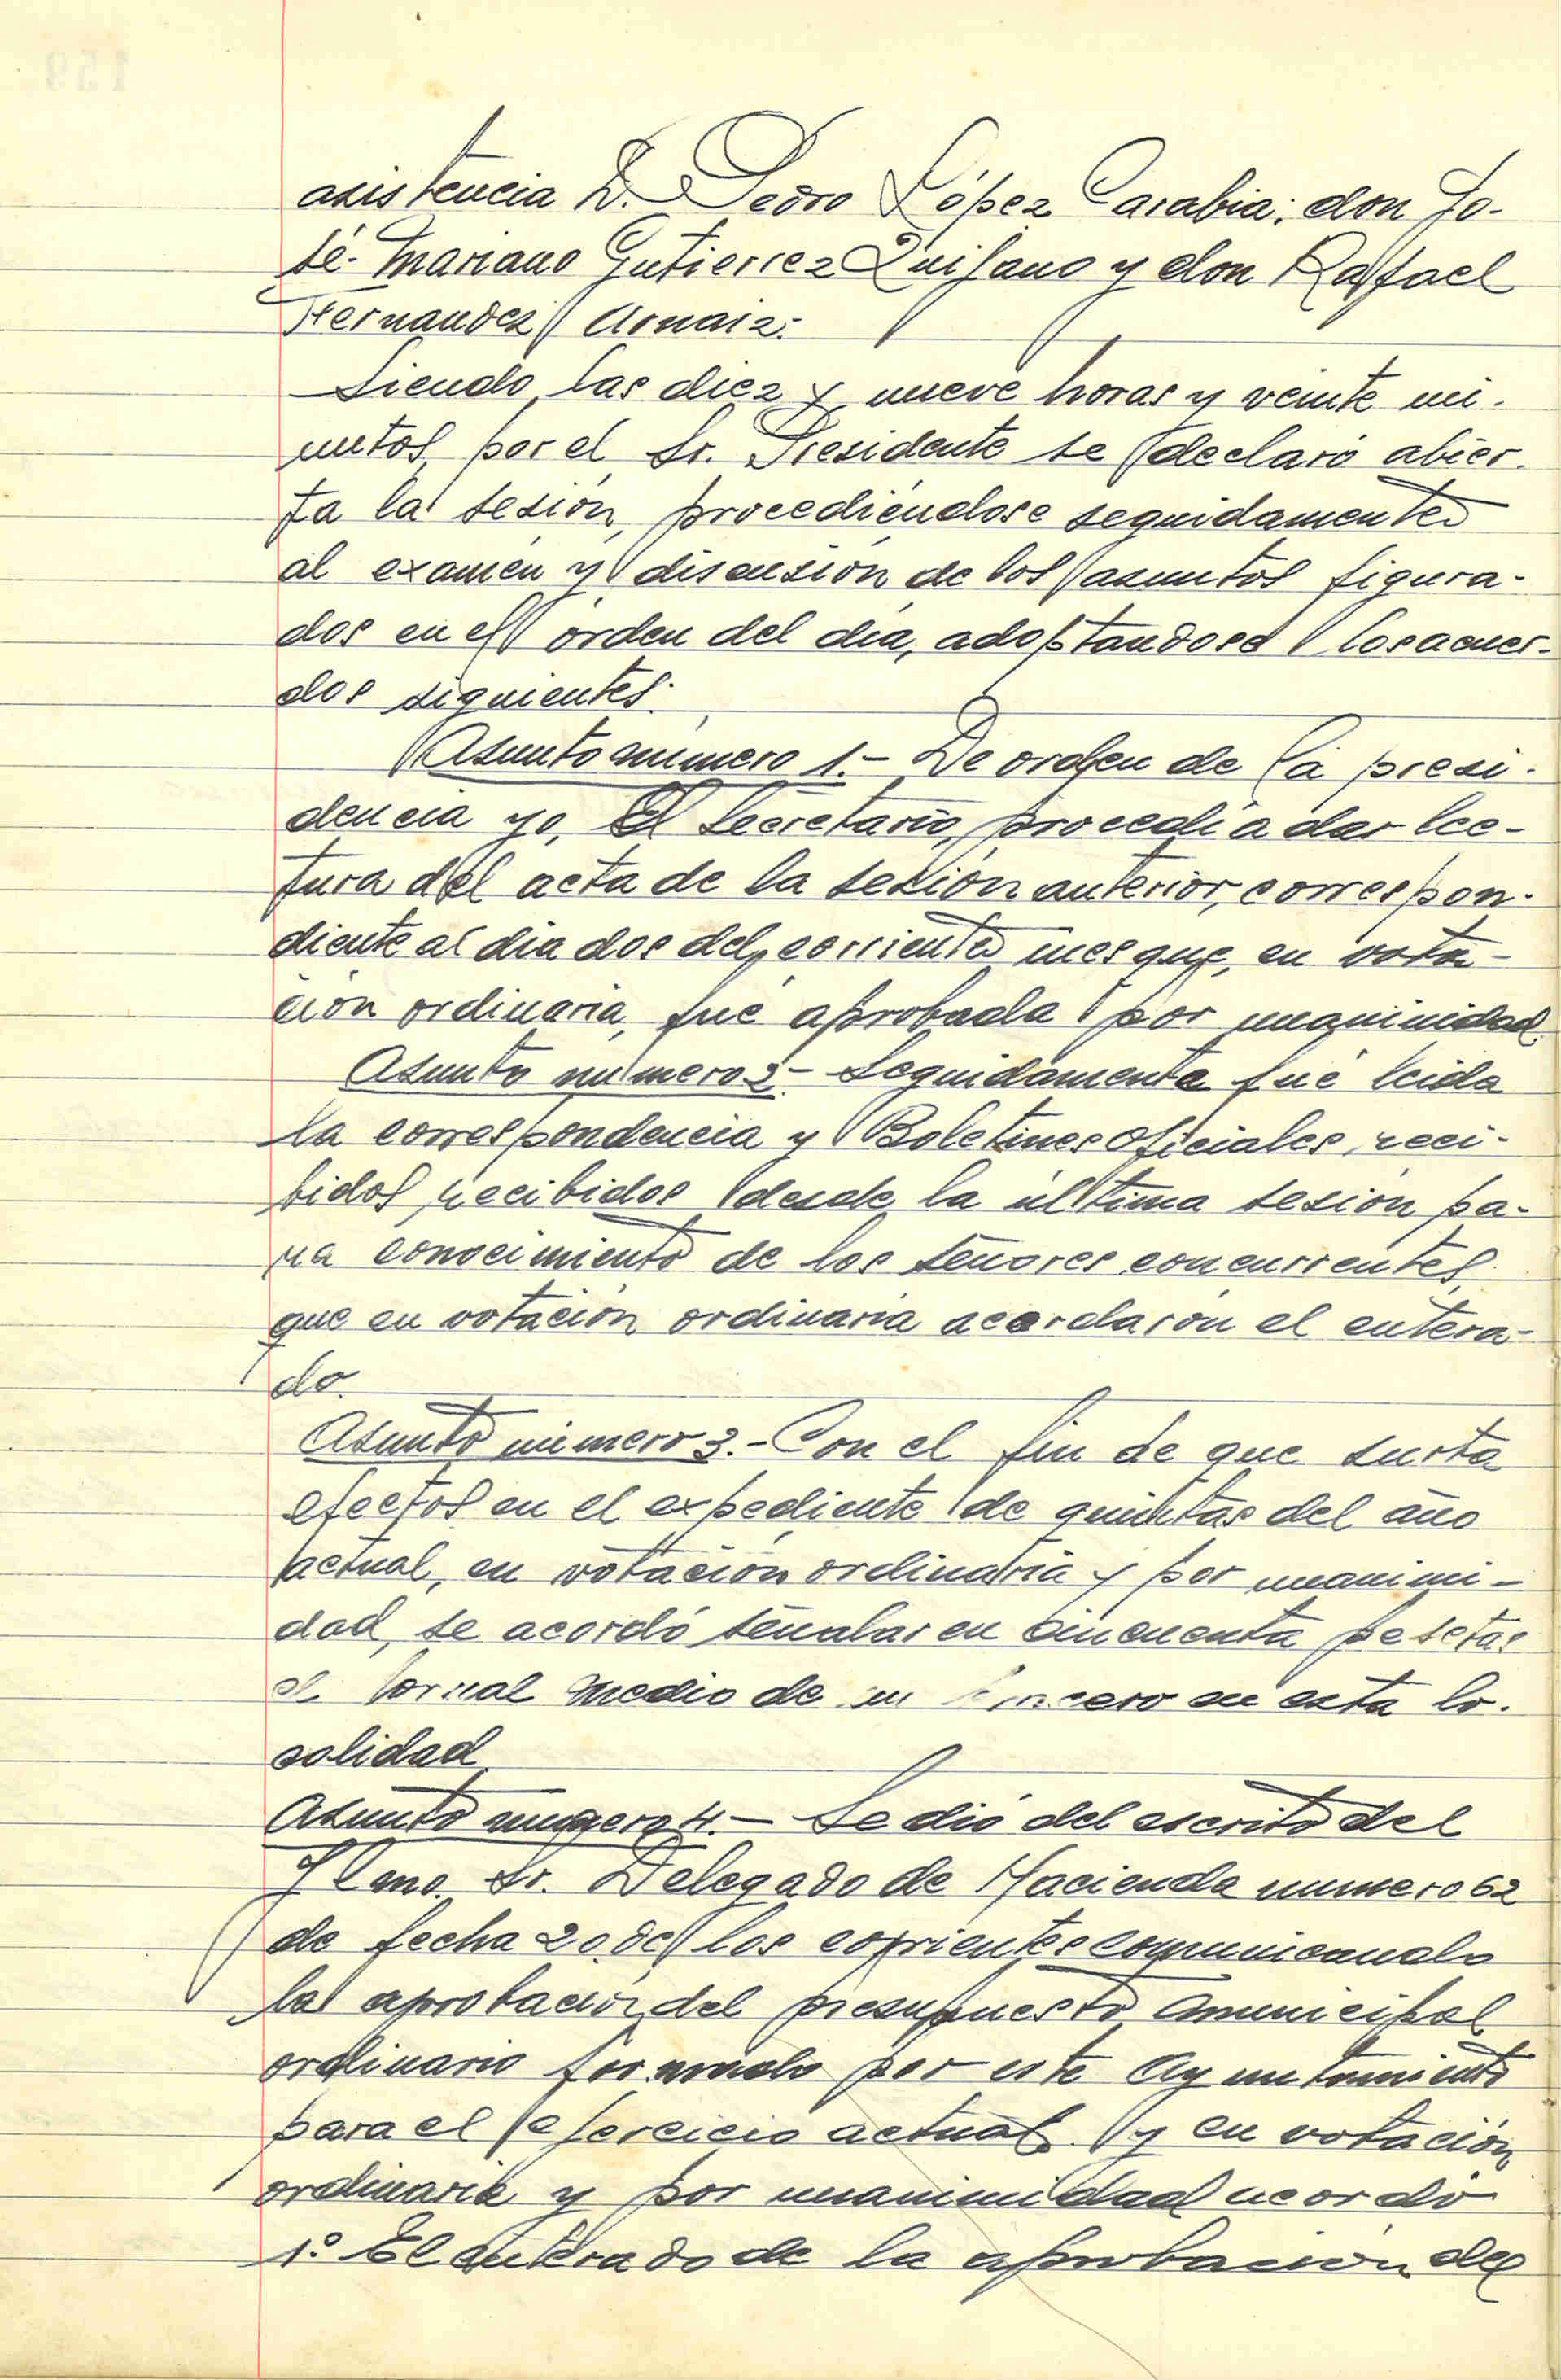 asistencia D. Pedro López Carabia; don Jo-
sé- Mariano Gutierrez Quijano y don Rafael
Hernandez Arnaiz:
Siendo las diez y nueve horas y veinte mi-
nutos, por el Sr. Presidente se declaró abier-
ta la sesión, procediéndose seguidamente
al examen y discusión de los asuntos figura-
dos en el órden del dia, adoptandose los acuer-
dos siguientes:
Asunto número 1.- De orden de la presi-
dencia yo, El Secretario, procedí a dar lec-
tura del acta de la sesión anterior, correspon-
diente al dia dos del corriente mes que, en vota-
ción ordinaria, fué aprobada por unanimidad.
Asunto número 2.- Seguidamente fué leida
la correspondencia y Boletines Oficiales, reci-
bidos recibidos desde la última sesión pa-
ra conocimiento de los señores concurrentes,
que en votación ordinaria acordaron el entera-
do.
Asunto número 3.- Con el fin de que surta
efectos en el expediente de quintas del año
actual, en votación ordinaria y por unanimi-
dad, se acordó señalar en cincuenta pesetas
el jornal medio de un bracero en esta lo-
calidad
Asunto número 4.- Se dió del escrito del
Ilmo. Sr. Delegado de Hacienda numero 62
de fecha 20 de los corrientes comunicando
la aprobación del presupuesto municipal
ordinario formado por este Ayuntamiento
para el ejercicio actual y en votación
ordinaria y por unanimidad acordó
1º El enterado de la aprobación del